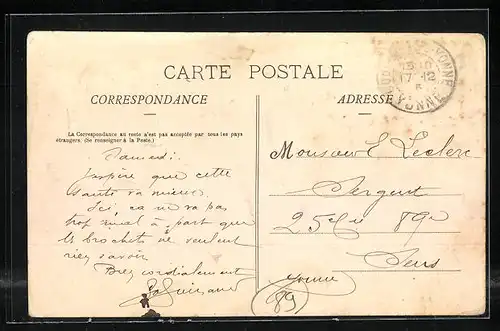 CARTE POSTALE
CORRESPONDANCE
ADRESSE
La Correspondance au recto n'est pas acceptée par tous les pays
étrangers. (Se renseigner à la Poste.)
Samedi.
J'espère que cette
santé va mieux.
Ici, ça ne va pas
trop mal à part que
les brochets ne veulent
rien savoir
Bien cordialement
Monsieur E Leclerc
Sergent
25e Cie 89e
Sens
Yonne
(89)
YONNE
17-12